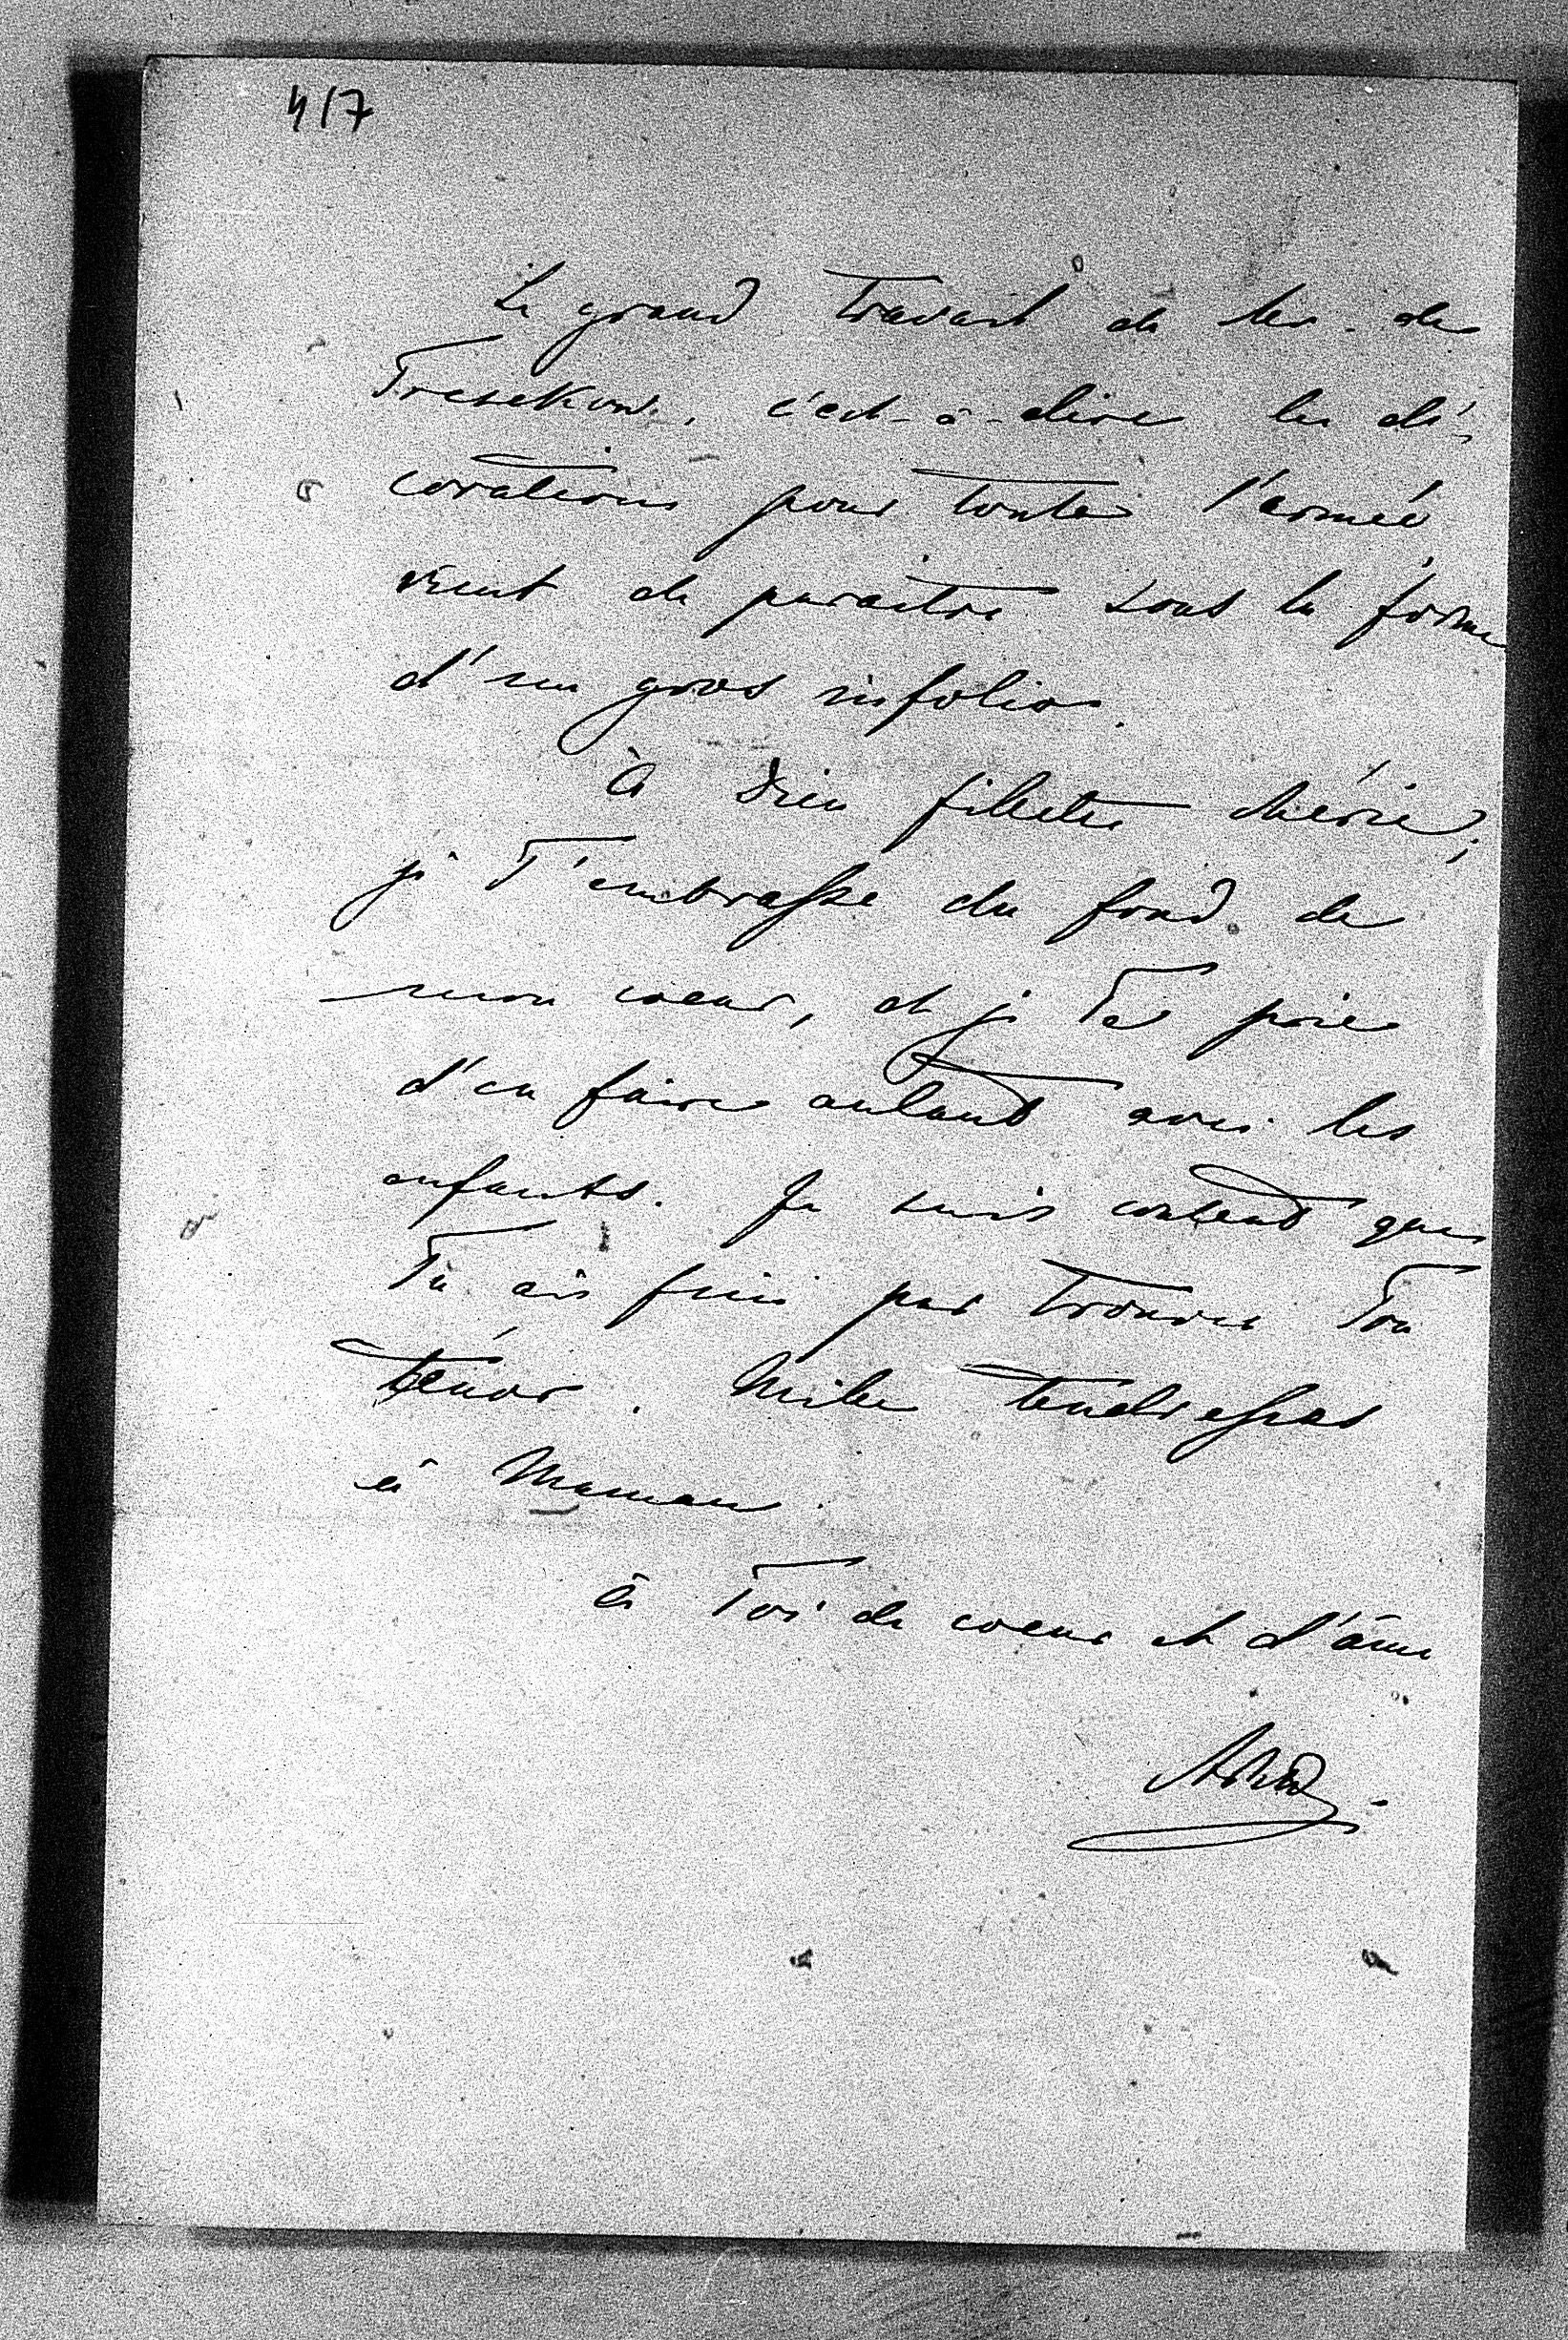 4/7
Le grand travail de Mr. de
Tresckow, c'est-à-dire les dé-
corations pour toute l'armée
vient de paraître sous la forme
d'un gros infolio.
À Dieu fillette chérie;
je T'embrasse du fond de
mon coeur, et je Te prie
d'en faire autant avec les
enfants. Je suis content que
Tu ais fini par trouver Ton
ténor. Mille tendresses
à Maman.
à Toi de coeur et d'âme